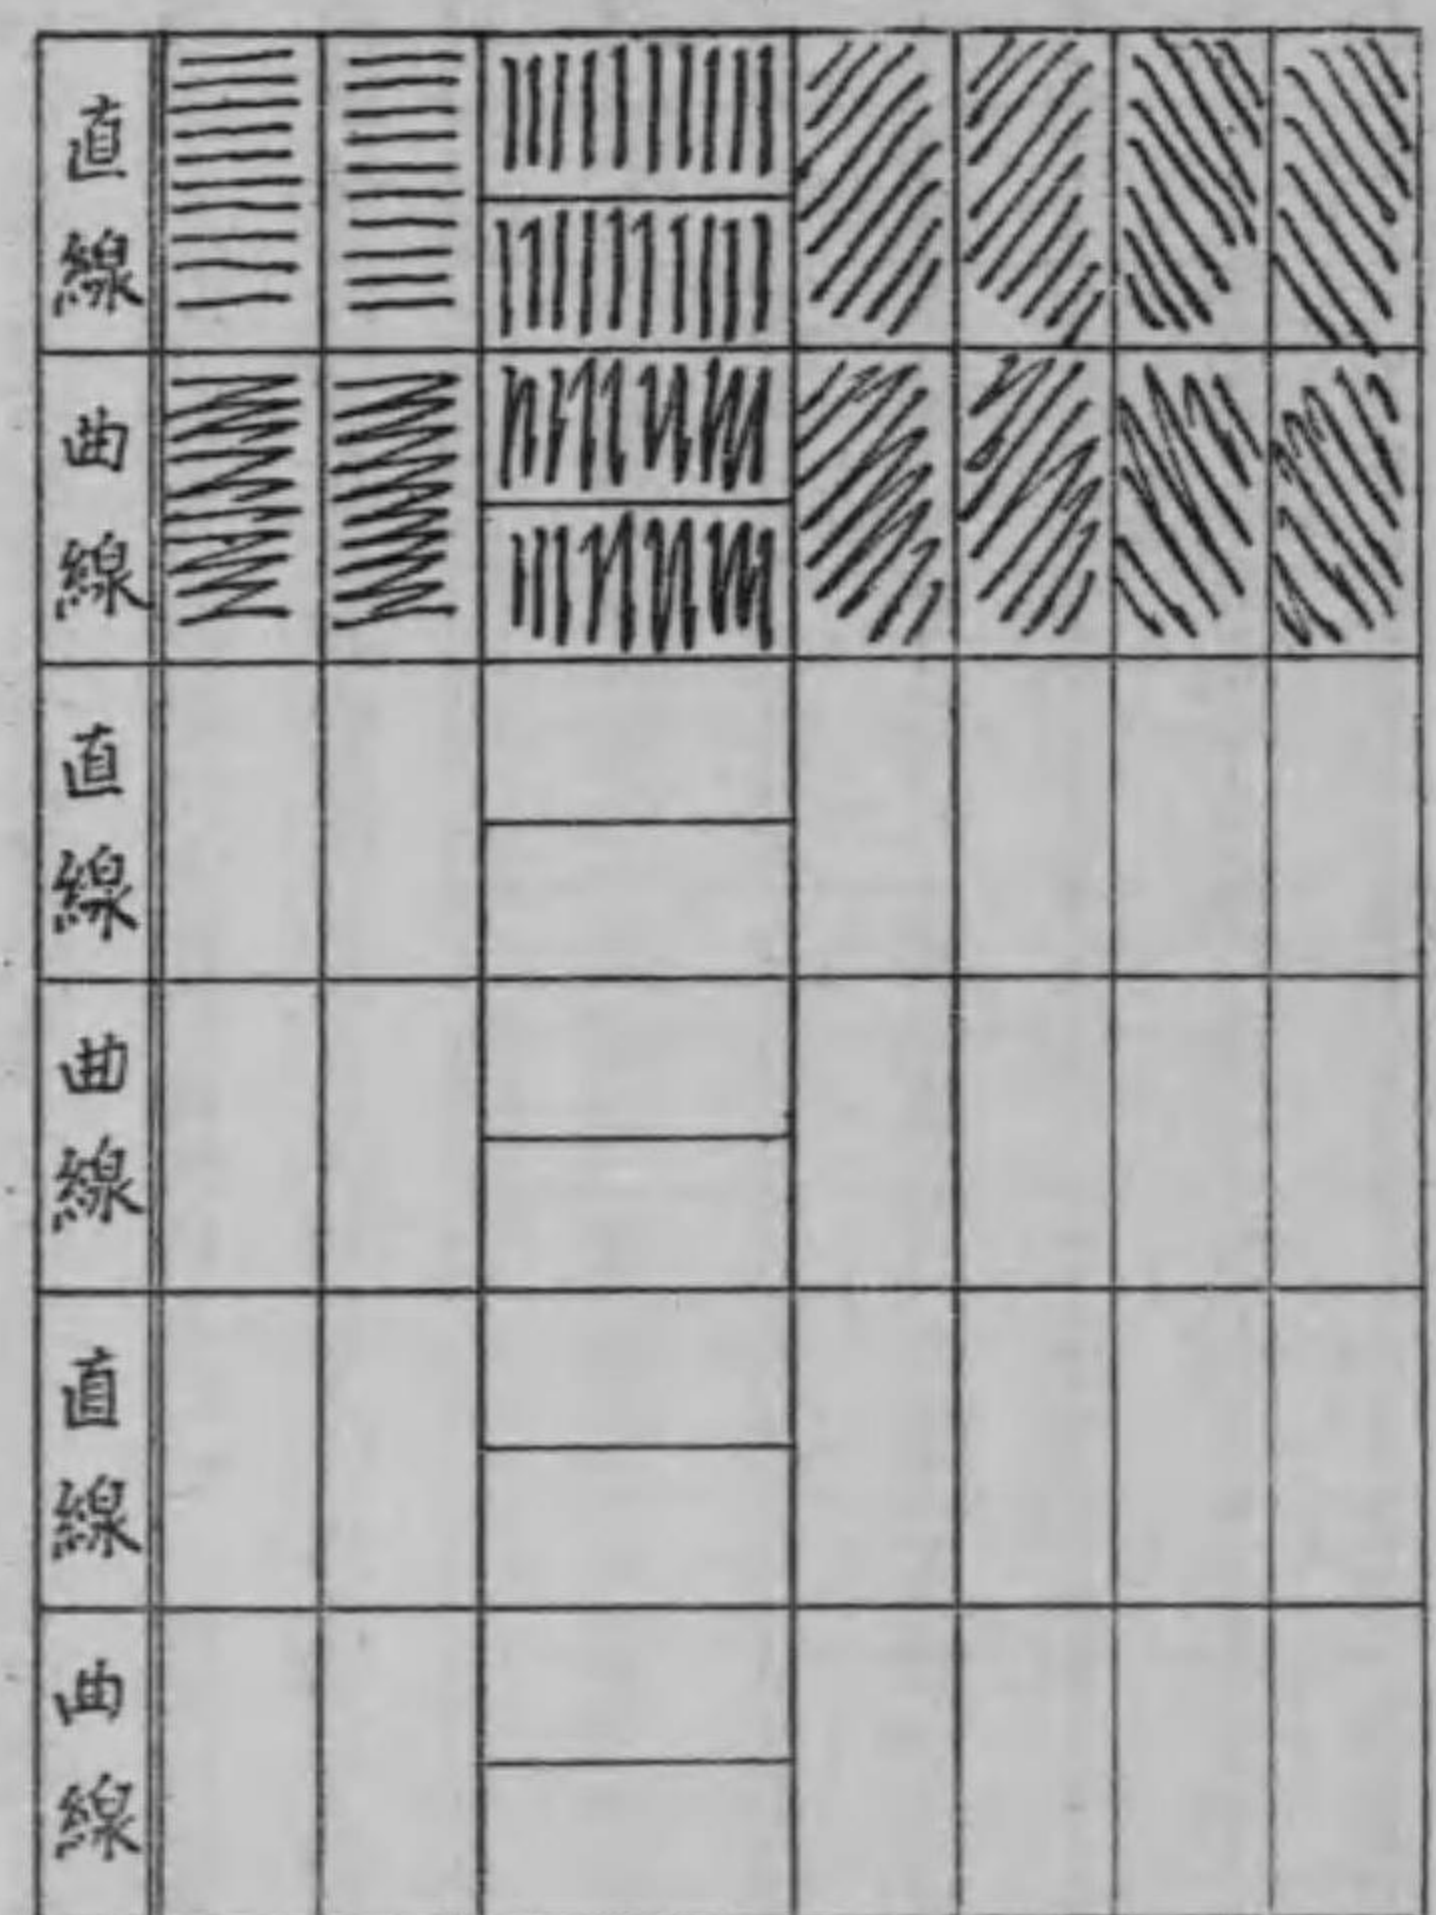 直線
曲線
直線
曲線
直線
曲線